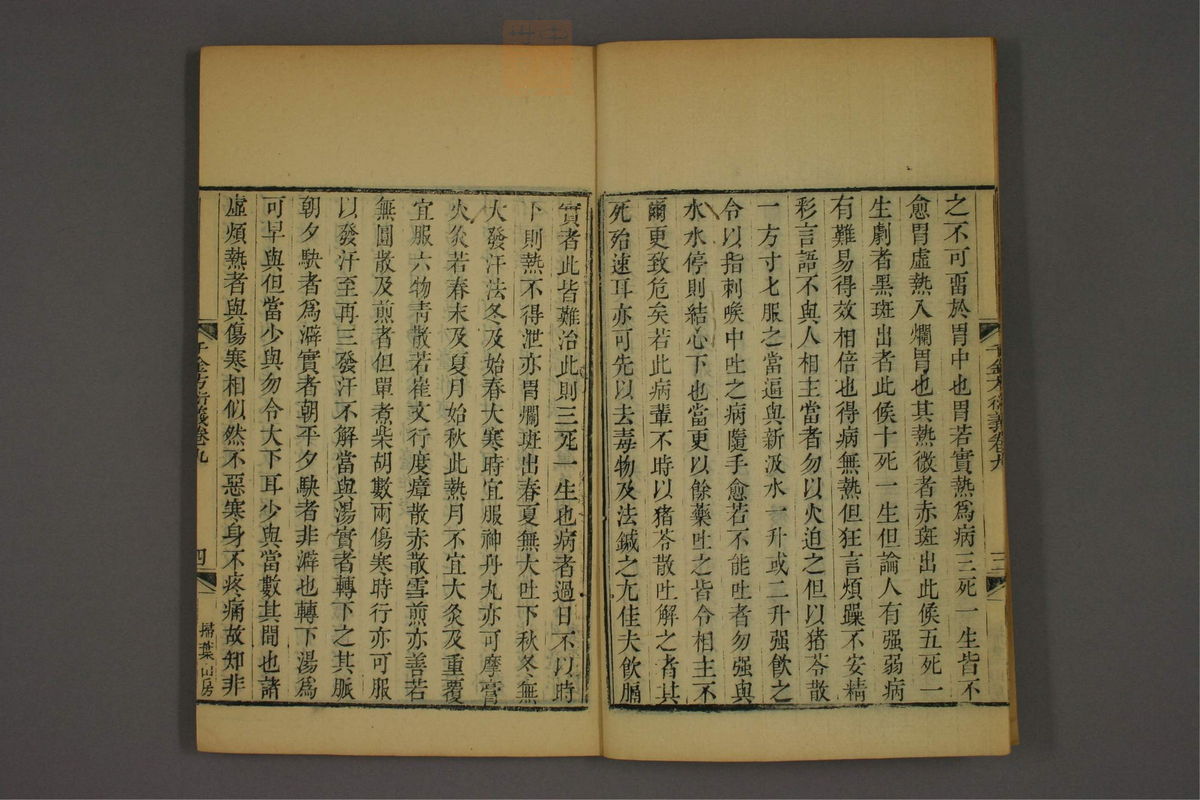 之不可畱於胃中也胃若實熱爲病三死一生皆不
愈胃虛熱入爛胃也其熱微者赤斑出此候五死一
生劇者黑斑出者此候十死一生但論人有强弱病
有難易得效相倍也得病無熱但狂言煩躁不安精
彩言語不與人相主當者勿以火迫之但以猪苓散
一方寸匕服之當逼與新汲水一升或二升强飮之
令以指刺喉中吐之病隨手愈若不能吐者勿强與
水水停則結心下也當更以餘藥吐之皆令相主不
爾更致危矣若此病輩不時以猪苓散吐解之者其
死殆速耳亦可先以去毒物及法鍼之尢佳夫飮膈
千金方衍義卷九
三
實者此皆難治此則三死一生也病者過日不以時
下則熱不得泄亦胃爛斑出春夏無大吐下秋冬無
大發汗法冬及始春大寒時宜服神丹丸亦可摩膏
火灸若春末及夏月始秋此熱月不宜火灸及重覆
宜服六物靑散若崔文行度瘴散赤散雪煎亦善若
無圓散及煎者但單煮柴胡數兩傷寒時行亦可服
以發汗至再三發汗不解當與湯實者轉下之其脈
朝夕駃者爲澼實者朝平夕駃者非澼也轉下湯爲
可早與但當少與勿令大下耳少與當數其間也諸
虛煩熱者與傷寒相似然不惡寒身不疼痛故知非
千金方衍義卷九
四
掃葉山房